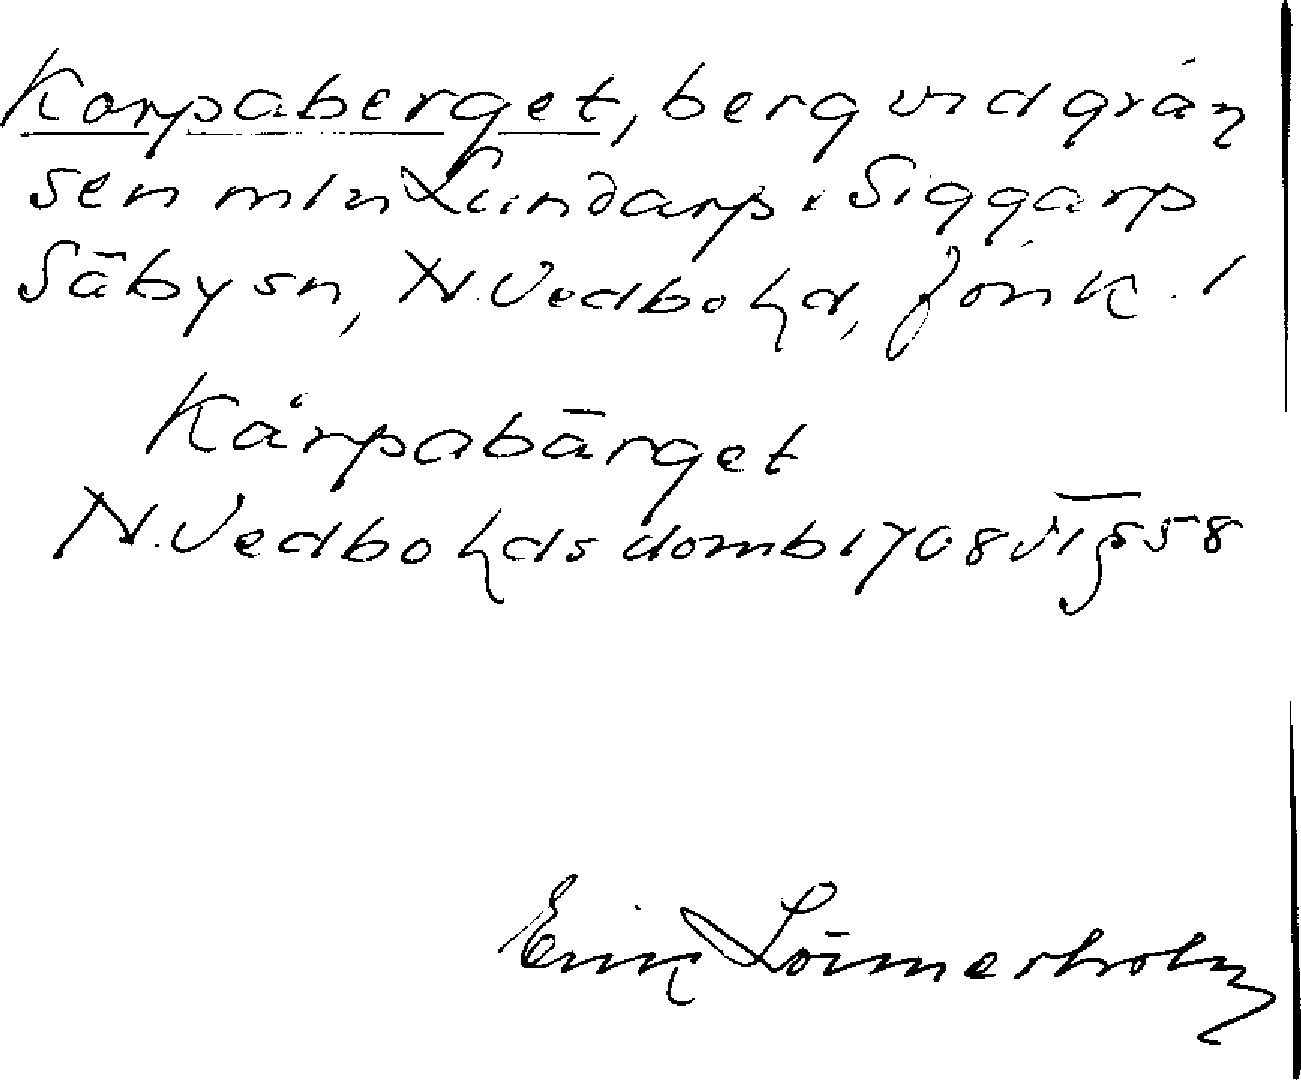 Korpaberget, berg vid grän
sen mln Lundarp o Siggarp
Säby sn, N. Vedbo hd, Jönk. l
Kårpabärget
N. Vedbo hds domb 1708 VI § 58
Erik